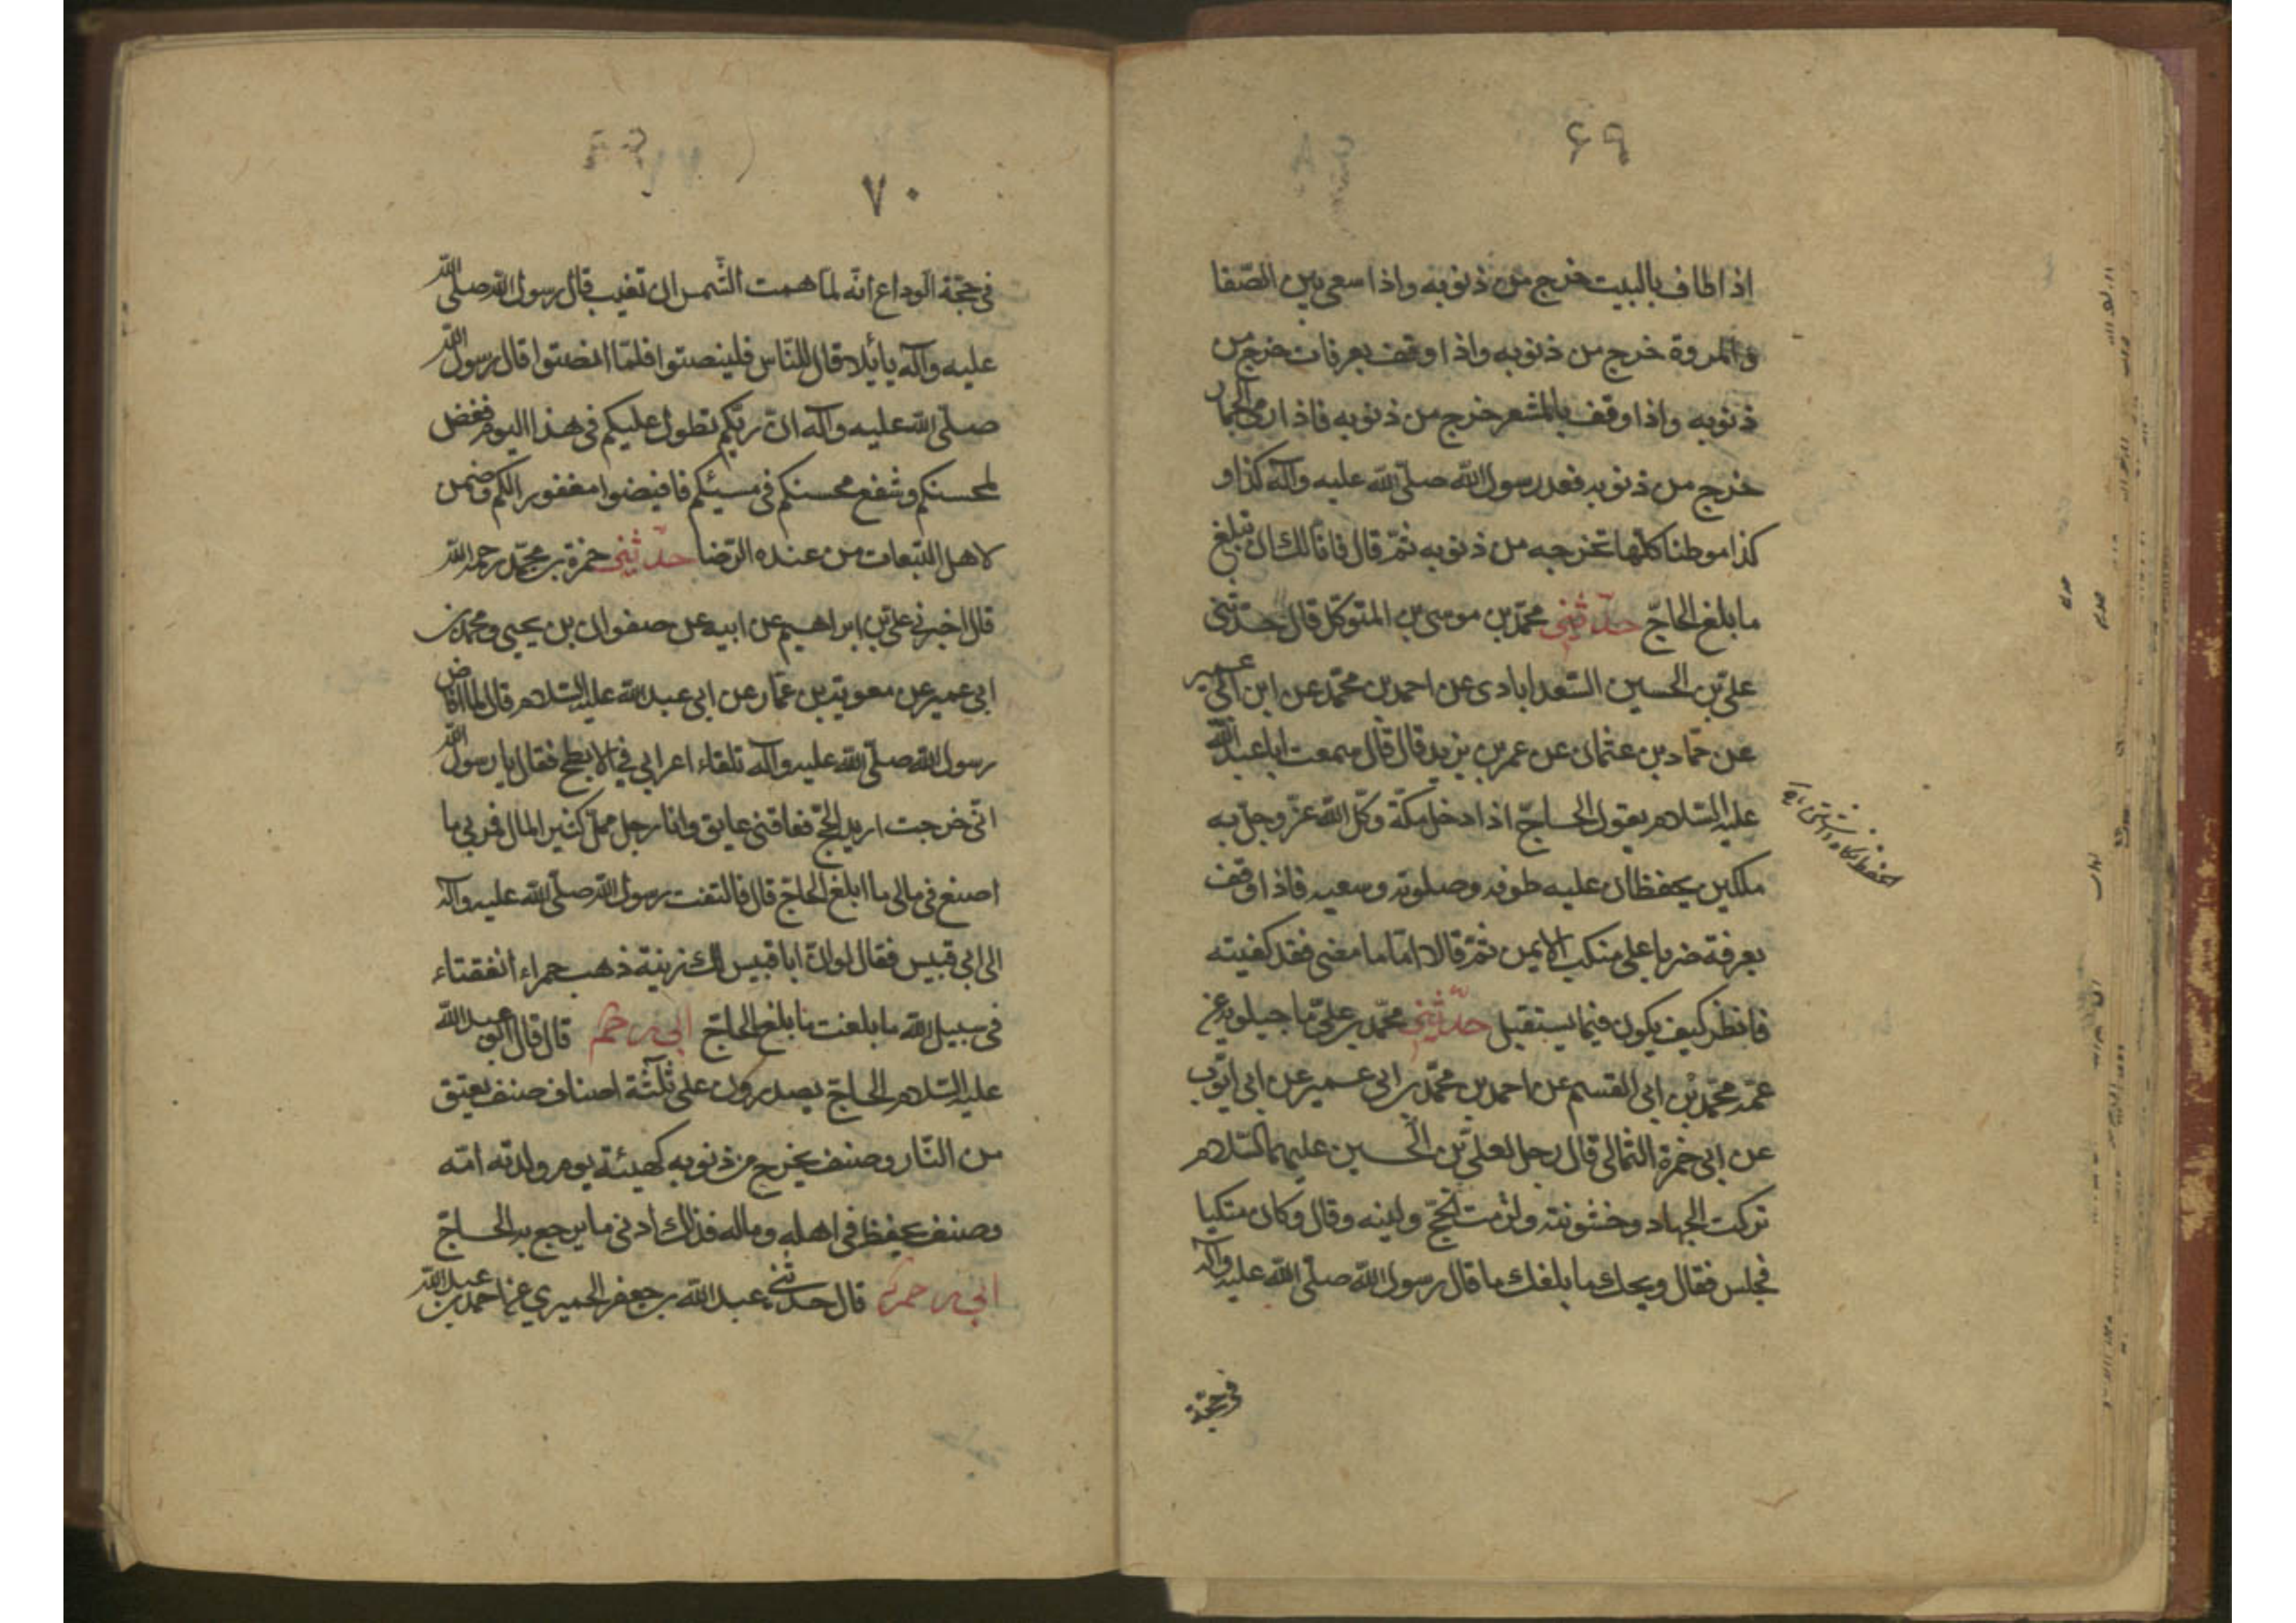 ۶۹
اذا طاف بالبيت خرج من ذنوبه واذا سعى بين الصّفا
والمروة خرج من ذنوبه واذا وقف بعرفات خرج من
ذنوبه واذا وقف بالمشعر خرج من ذنوبه فاذا رمى الجمار
خرج من ذنوبه فعد رسول اللّه صلّى اللّه عليه وآله كذا و
كذا موطنا كلّها تخرجه من ذنوبه ثمّ قال فانّا لك ان تبلغ
ما بلغ الحاجّ حدّثنى محمّد بن موسى بن المتوكّل قال حدّثنى
علىّ بن الحسين السّعدابادى عن احمد بن محمّد عن ابن ابى عمير
عن حمّاد بن عثمان عن عمر بن يزيد قال قال سمعت ابا عبد اللّه
عليه السّلام يقول الحاجّ اذا دخل مكّة وكّل اللّه عزّ وجلّ به
ملكين يحفظان عليه طوفه وصلوته وسعيه فاذا وقف
بعرفة ضربا على منكبه الايمن ثمّ قالا امّا ما مضى فقد كفيته
فانظر كيف يكون فيما يستقبل حدّثنى محمّد بن علىّ ماجيلويه عن
عمّه محمّد بن ابى القسم عن احمد بن محمّد بن ابى عمير عن ابى ايّوب
عن ابى حمزة الثمالى قال رجل لعلىّ بن الحسين عليهما السّلام
تركت الجهاد وخشونته ولزمت الحجّ ولينه وقال وكان متكيا
فجلس فقال ويحك ما بلغك ما قال رسول اللّه صلّى اللّه عليه وآله
فى حجّة
۷۰
فى حجّة الوداع انّه لمّا همت الشّمس ان تغيب قال رسول اللّه صلّى اللّه
عليه وآله يا بلال قال للنّاس فلينصتوا فلمّا انصتوا قال رسول اللّه
صلّى اللّه عليه وآله انّ ربّكم تطول عليكم فى هذا اليوم فغفر
لمحسنكم وشفع محسنكم فى مسيئكم فافيضوا مغفورا لكم وضمن
لاهل التّبعات من عنده الرّضا حدّثنى حمزة بن محمّد رحمه اللّه
قال اخبرنى علىّ بن ابراهيم عن ابيه عن صفوان بن يحيى ومحمّد بن
ابى عمير عن معوية بن عمّار عن ابى عبد اللّه عليه السّلام قال لمّا افاض
رسول اللّه صلّى اللّه عليه وآله تلقاء اعرابى فى الابطح فقال يا رسول اللّه
انّى خرجت اريد الحجّ فعاقنى عايق وانا رجل ملىّ كثير المال فمرنى ما
اصنع فى مالى ما ابلغ الحاجّ قال فالتفت رسول اللّه صلّى اللّه عليه وآله
الى ابى قبيس فقال لو انّ ابا قبيس لك زينة ذهب حمراء انفقتاء
فى سبيل اللّه ما بلغت ما بلغ الحاجّ ابى رحمه قال قال ابو عبد اللّه
عليه السّلام الحاجّ يصدرون على ثلثة اصناف صنف يعتق
من النّار وصنف يخرج من ذنوبه كهيئة يوم ولدته امّه
وصنف يحفظ فى اهله وماله فذلك ادنى ما يرجع به الحاجّ
ابى رحمه قال حدّثنى عبد اللّه بن جعفر الحميرى عن احمد بن عبد اللّه